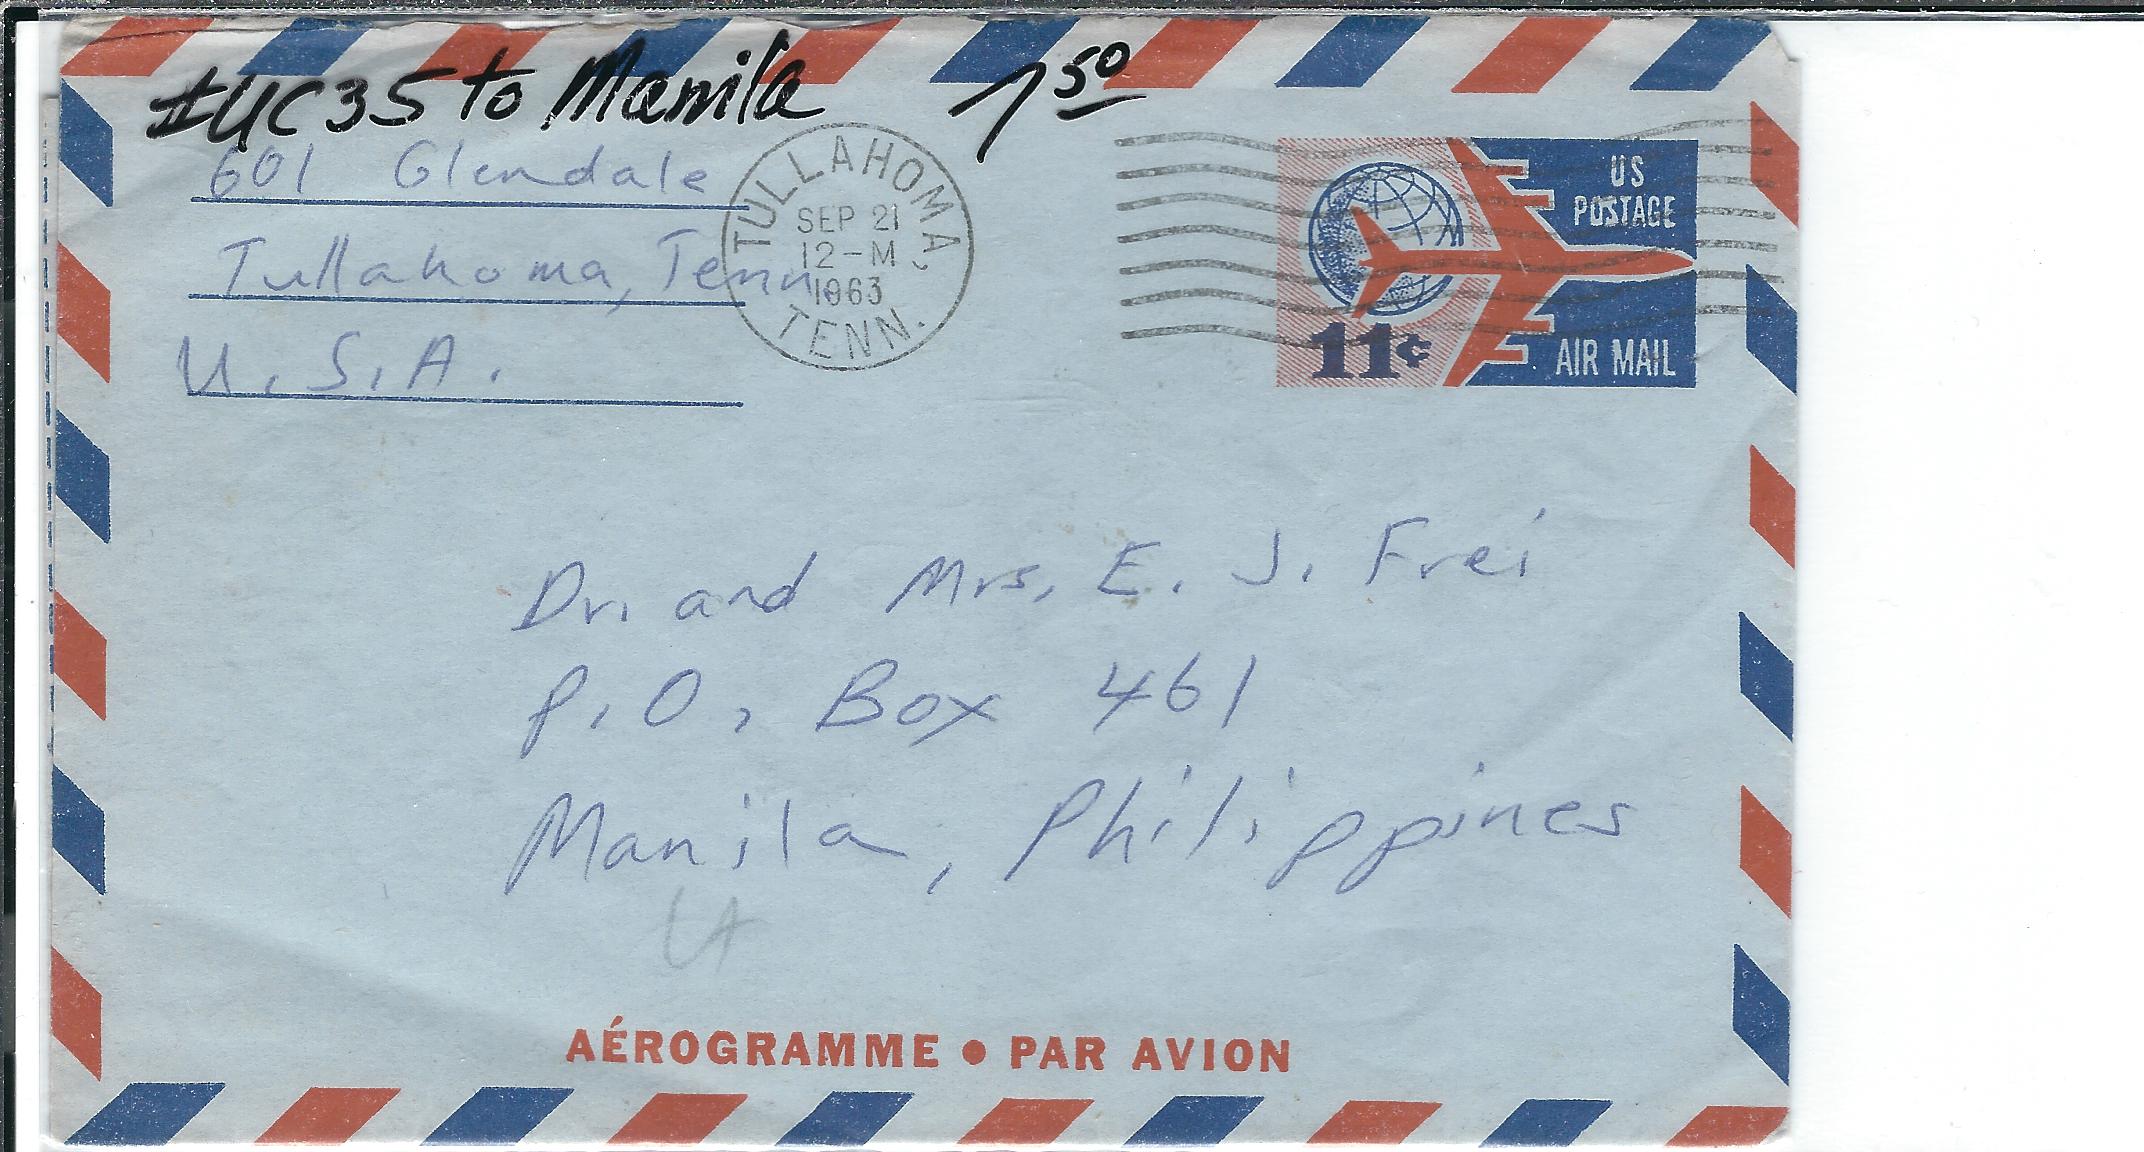 #UC35 to Manila 7 50
601 Glendale
Tullahoma, Tenn.
U.S.A.
TULLAHOMA,
SEP 21
12-M
1963
TENN.
US
POSTAGE
11¢
AIR MAIL
Dr. and Mrs. E. J. Frei
P.O. Box 461
Manila, Philippines
AÉROGRAMME • PAR AVION